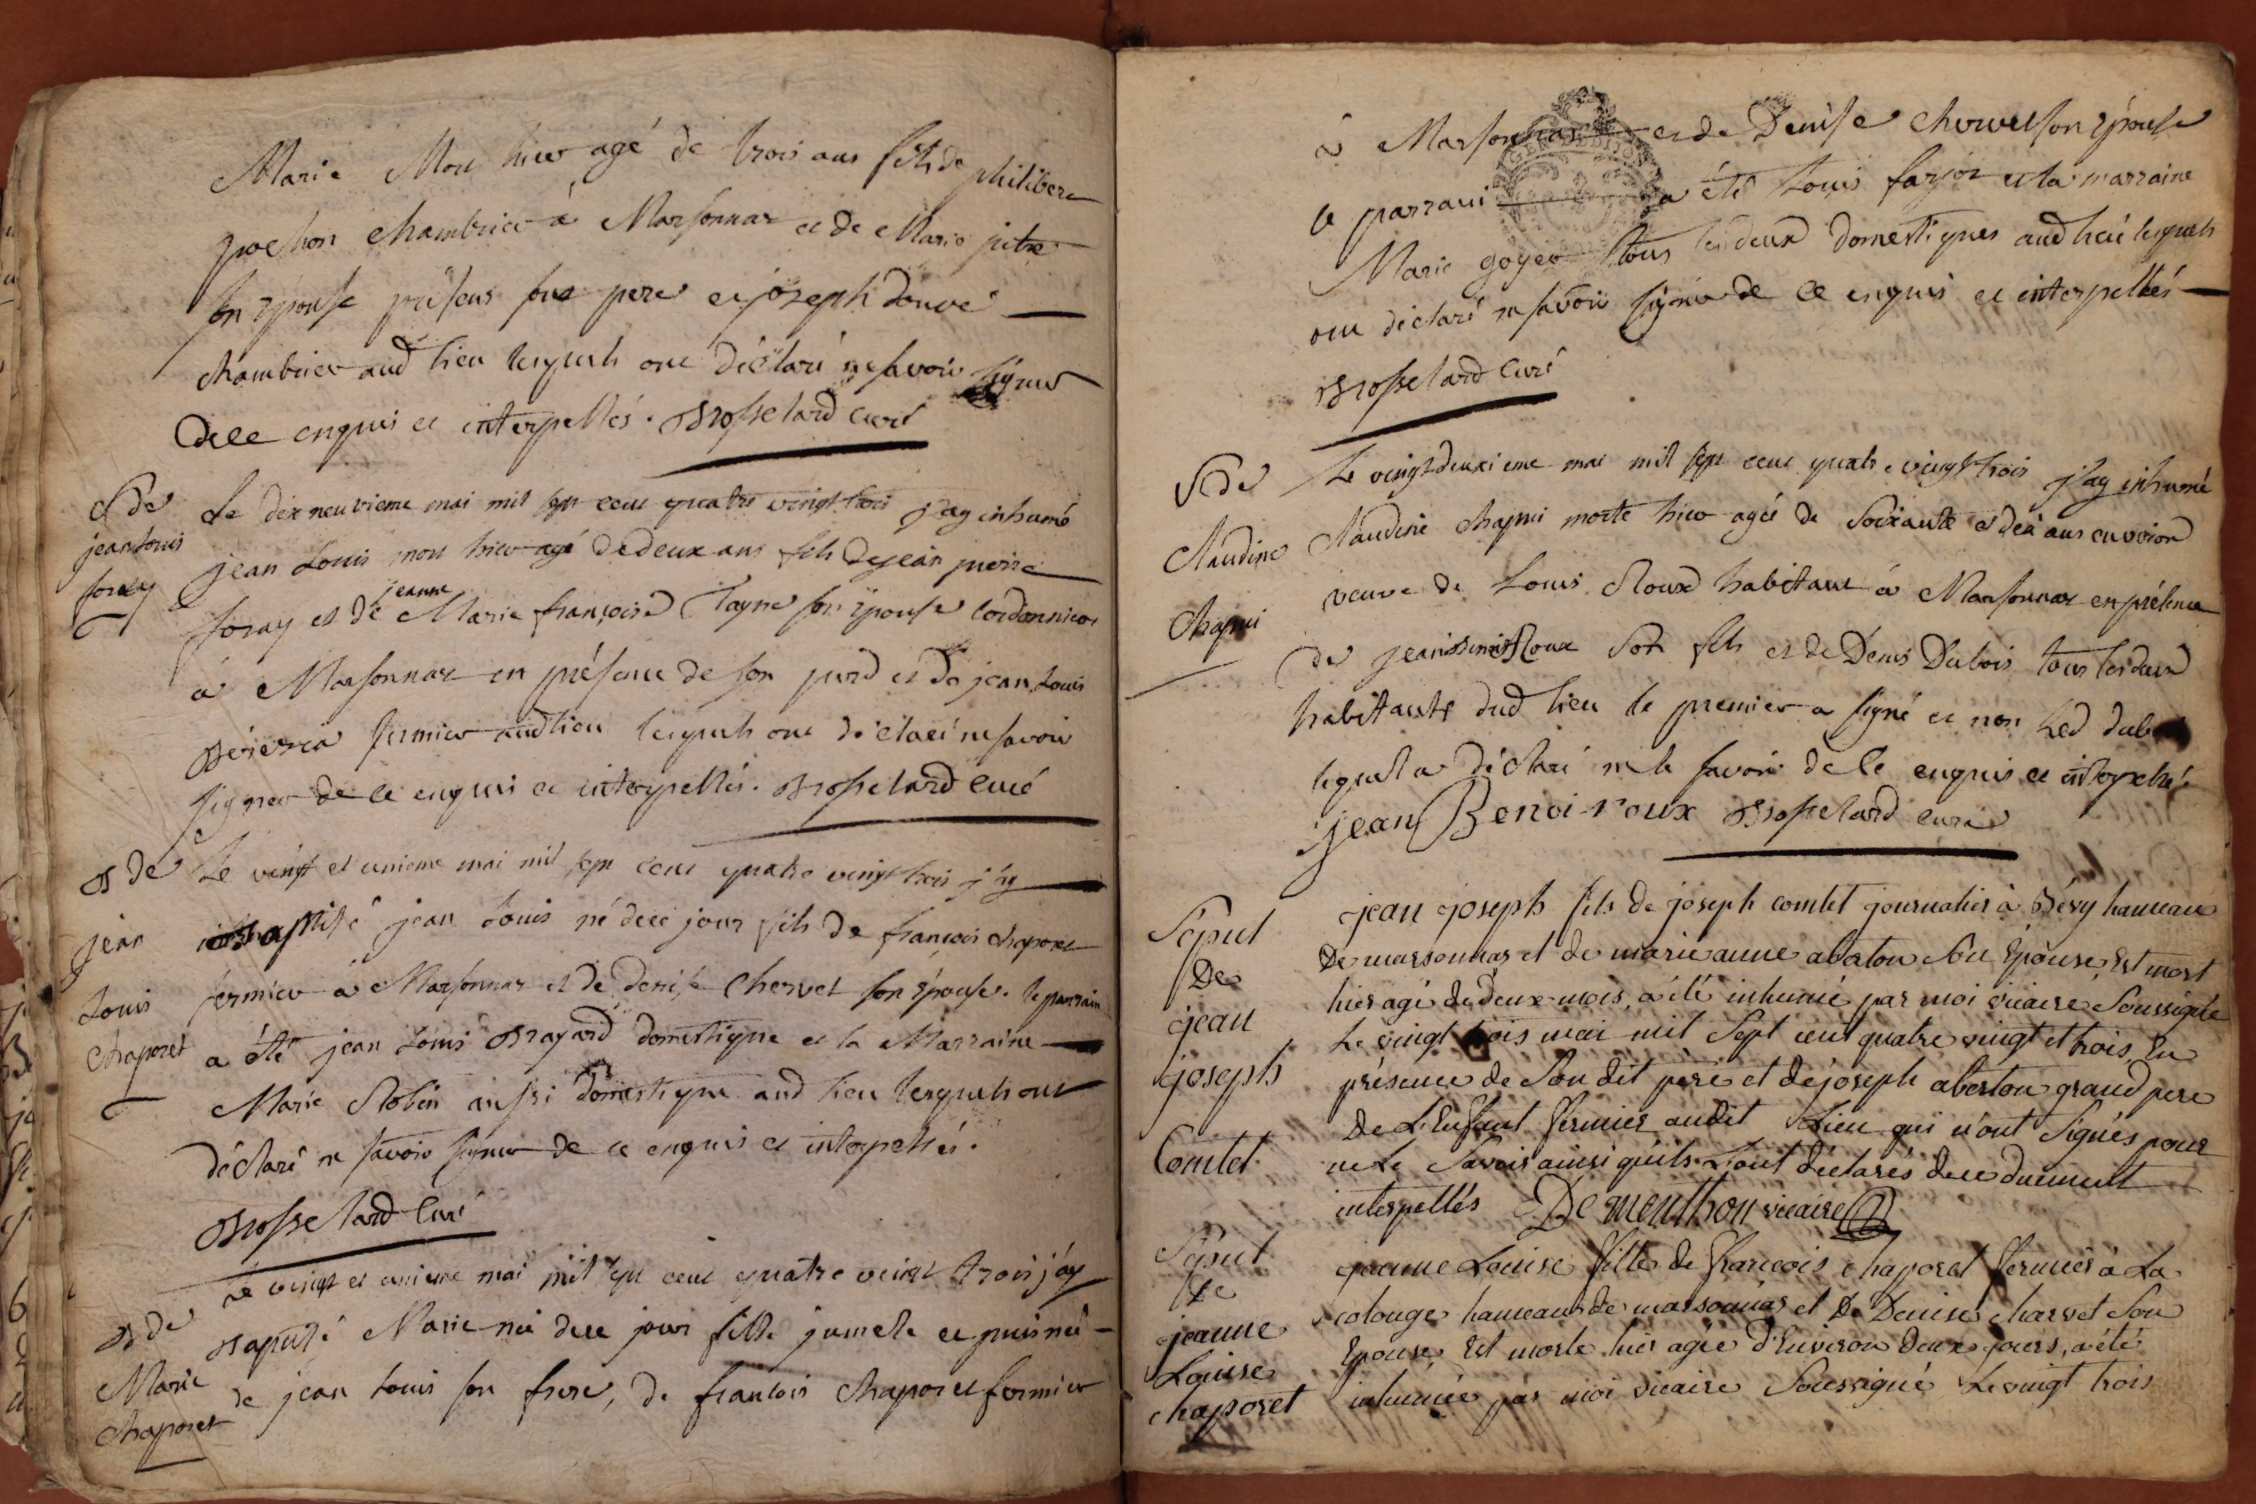 Marie Mort hier agé de trois ans fils de philibert
pochon chambrier à Marsonnaz et de Marie
son épouse présens son pere et joseph
chambrier aud lieu lesquels ont déclaré ne savoir signer
de ce enquis et interpellés. Brosselard curé
S de
jean louis
foray
Le dix neuvieme mai mil sept cent quatre vingt trois j'ay inhumé
jean Louis mort hier agé de deux ans fils de jean pierre
foray et de jeanne Marie françoise son épouse cordonnier
à Marsonnaz en présence de son pere et de jean Louis
fermier aud lieu lesquels ont déclaré ne savoir
signer de ce enquis et interpellés. Brosselard curé
B de
jean
Louis
Chaporet
Le vingt et unieme mai mil sept cent quatre vingt trois j'ay
Baptisé jean Louis né de ce jour fils de françois chaporet
fermier à Marsonnaz et de denise Chervet son épouse. le parrain
a été jean Louis Brayard domestique et la Marraine
Marie Robin aussi domestique aud lieu lesquels ont
déclaré ne savoir signer de ce enquis et interpellés.
Brosselard Curé
B de
Marie
Chaporet
Le vingt et unieme mai mil sept cent quatre vingt trois j'ay
Baptisé Marie née de ce jour fille jumele et puisnée
de jean Louis son frere, de francois Chaporet fermier
à Marsonnaz et de Denise Chervet son épouse
le parrain a été Louis farjot et la marraine
Marie goyer tous les deux domestiques aud lieu lesquels
ont déclaré ne savoir signer de ce enquis et interpellés
Brosselard Curé
S de
Claudine
Chapui
Le vingt deuxieme mai mil sept cent quatre vingt trois j'ay inhumé
Claudine chapui morte hier agée de soixante et dix ans environ
veuve de Louis Roux habitant à Marsonnaz en présence
de jean Benoit Roux son fils et de Denis Dubois tous les deux
habitants dud lieu le premier a signé et non led dubois
lequel a déclaré ne le savoir de ce enquis et interpellé
jean Benoi roux Brosselard curé
Sepul
De
jean
joseph
Comtet
jean joseph fils de joseph comtet journalier à Bévy hameau
de marsonnas et de marie anne aberton son Epouse Est mort
hier agé de deux mois, a été inhumé par moi vicaire soussigné
Le vingt trois mai mil sept cent quatre vingt et trois En
présence de son dit père et de joseph aberton grand pere
De L'Enfant fermier audit Lieu qui n'ont signés pour
ne Le savoir ainsi qu'ils L'ont déclarés de ce duement
interpellés De menthon vicaire
Sepul
de
jeanne
Louise
chaporet
jeanne Louise fille de françois chaporet fermier à La
colonge hameau de marsonnas et De Denise charvet son
Epouse Est morte hier agée d'Environ deux jours, a été
inhumée par moi vicaire soussigné Le vingt trois